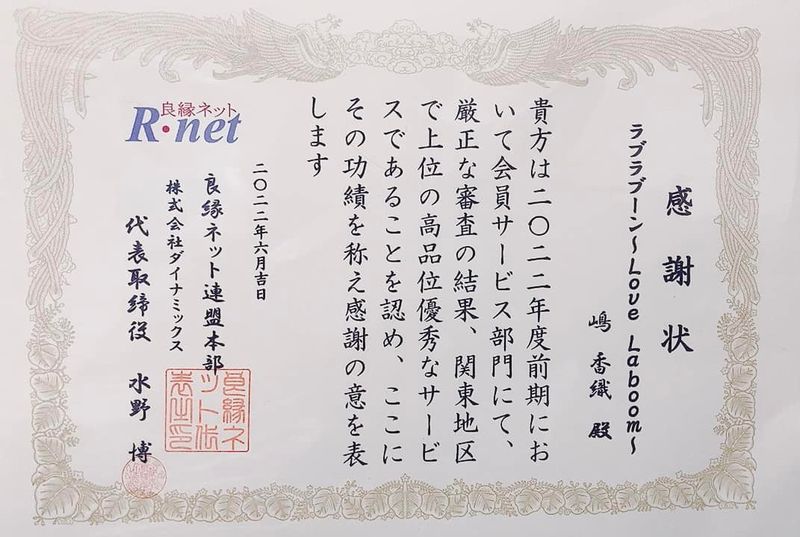 感謝状
ラブラブーン～Love Laboom～
嶋 香織 殿
貴方は二〇二二年度前期にお
いて会員サービス部門にて、
厳正な審査の結果、関東地区
で上位の高品位優秀なサービ
スであることを認め、ここに
その功績を称え感謝の意を表
します
良縁ネット
R・net
二〇二二年六月吉日
良縁ネット連盟本部
株式会社ダイナミックス
代表取締役 水野 博
良縁ネ
ット代
表之印